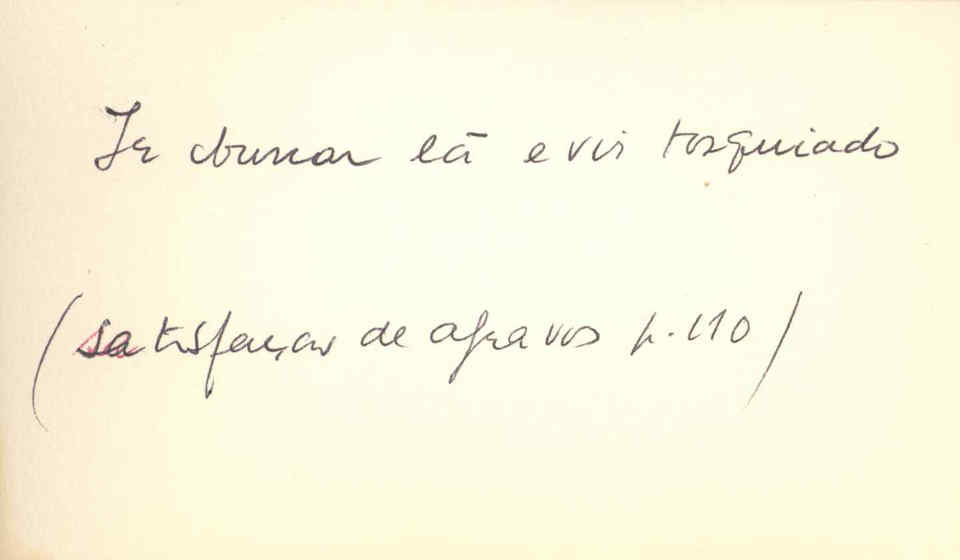 Ir buscar lã e vir tosquiado
(satisfação de agravos p. 110)